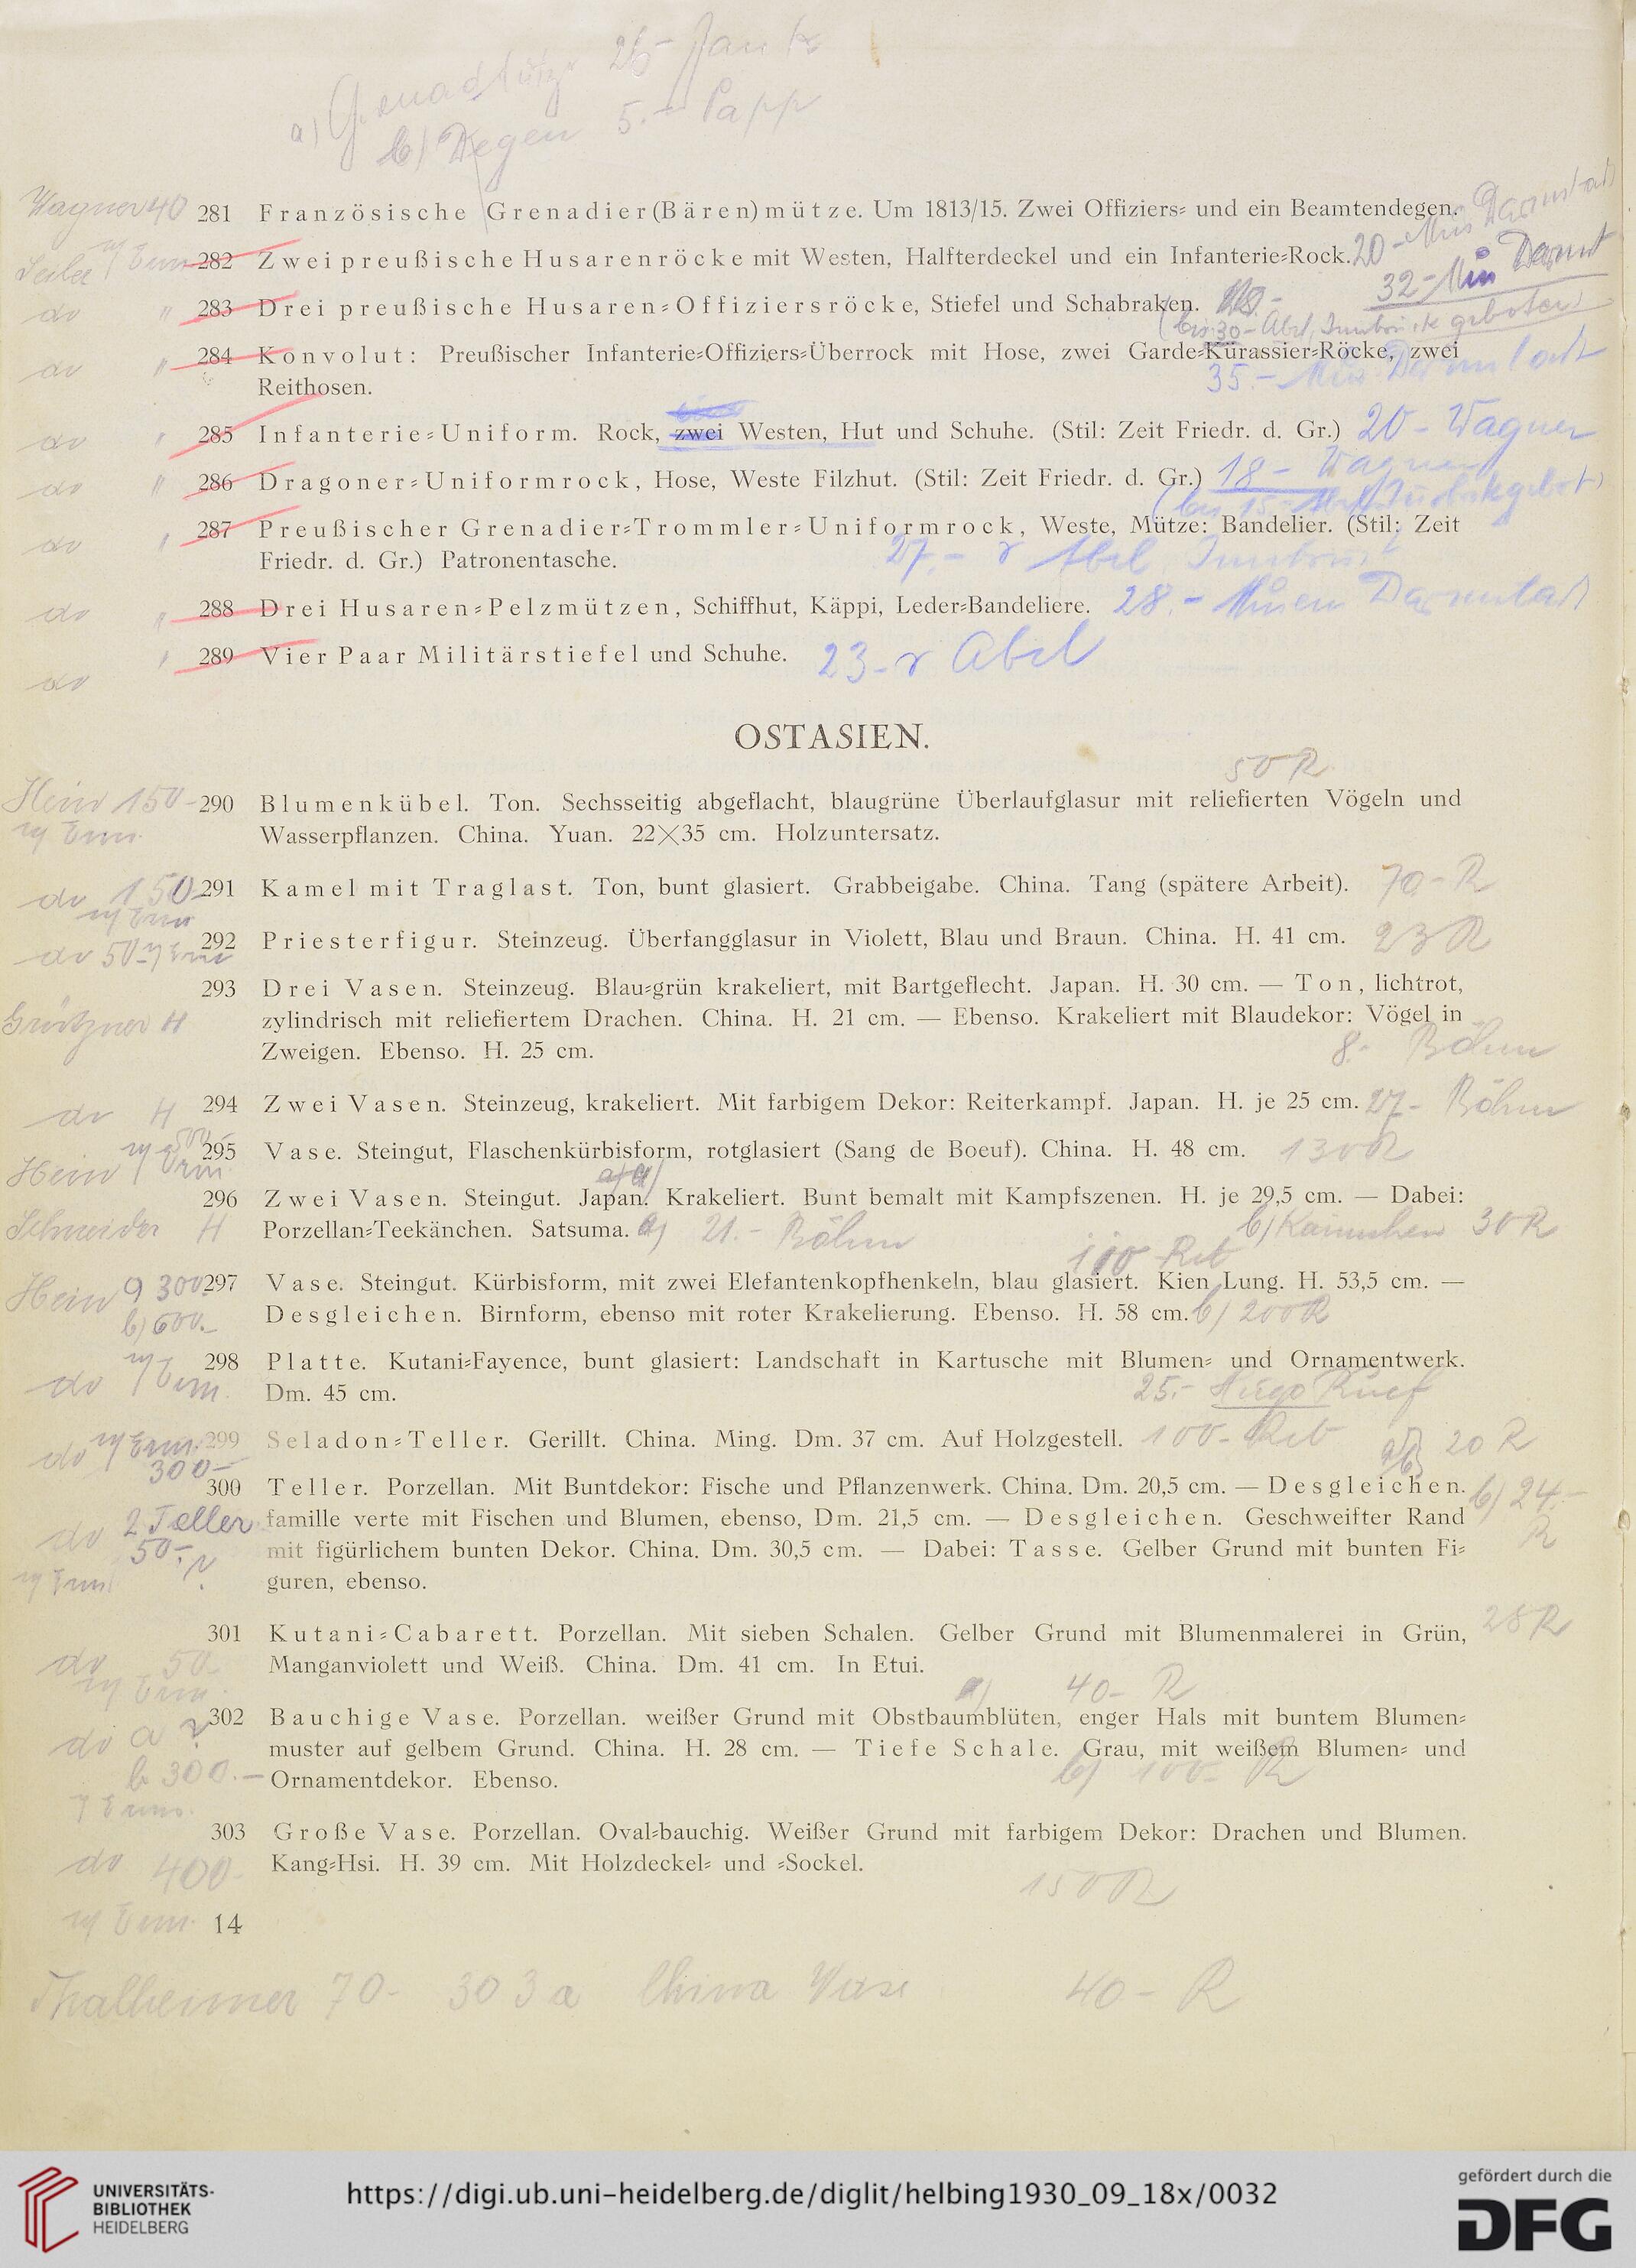 26- Janke
a) Grenadiermütze
b) Degen 5.- Papp
Wagner 40 281 Französische Grenadier(Bären)mütze. Um 1813/15. Zwei Offiziers= und ein Beamtendegen.
Darmstadt
282 Zwei preußische Husarenröcke mit Westen, Halfterdeckel und ein Infanterie=Rock. 20-
32-
do " 283 Drei preußische Husaren=Offiziersröcke, Stiefel und Schabraken.
geboten)
do " 284 Konvolut: Preußischer Infanterie=Offiziers=Überrock mit Hose, zwei Garde=Kürassier=Röcke, zwei
Reithosen. 35.- Darmstadt
do " 285 Infanterie=Uniform. Rock, zwei Westen, Hut und Schuhe. (Stil: Zeit Friedr. d. Gr.) 20- Wagner
do " 286 Dragoner=Uniformrock, Hose, Weste Filzhut. (Stil: Zeit Friedr. d. Gr.) 18- Wagner
do " 287 Preußischer Grenadier=Trommler=Uniformrock, Weste, Mütze: Bandelier. (Stil: Zeit
Friedr. d. Gr.) Patronentasche. 27.- Abel Innsbruck
do " 288 Drei Husaren=Pelzmützen, Schiffhut, Käppi, Leder=Bandeliere. 28.- Darmstadt
do " 289 Vier Paar Militärstiefel und Schuhe. 23- r Abel
OSTASIEN.
50 R
Hein 150- 290 Blumenkübel. Ton. Sechsseitig abgeflacht, blaugrüne Überlaufglasur mit reliefierten Vögeln und
Wasserpflanzen. China. Yuan. 22×35 cm. Holzuntersatz.
do 150 291 Kamel mit Traglast. Ton, bunt glasiert. Grabbeigabe. China. Tang (spätere Arbeit). 70- R
do 50- 292 Priesterfigur. Steinzeug. Überfangglasur in Violett, Blau und Braun. China. H. 41 cm. 23 R
293 Drei Vasen. Steinzeug. Blau=grün krakeliert, mit Bartgeflecht. Japan. H. 30 cm. — Ton, lichtrot,
Grützner H zylindrisch mit reliefiertem Drachen. China. H. 21 cm. — Ebenso. Krakeliert mit Blaudekor: Vögel in
Zweigen. Ebenso. H. 25 cm. 8.- Böhm
do H 294 Zwei Vasen. Steinzeug, krakeliert. Mit farbigem Dekor: Reiterkampf. Japan. H. je 25 cm. 27- Böhm
Hein 295 Vase. Steingut, Flaschenkürbisform, rotglasiert (Sang de Boeuf). China. H. 48 cm. 130 R
296 Zwei Vasen. Steingut. Japan. Krakeliert. Bunt bemalt mit Kampfszenen. H. je 29,5 cm. — Dabei:
Schneider H Porzellan=Teekänchen. Satsuma. a) 21.- Böhm b) Kännchen 30 R
Hein a 300 297 Vase. Steingut. Kürbisform, mit zwei Elefantenkopfhenkeln, blau glasiert. Kien Lung. H. 53,5 cm. —
b) 600.- Desgleichen. Birnform, ebenso mit roter Krakelierung. Ebenso. H. 58 cm. b) 200 R
298 Platte. Kutani=Fayence, bunt glasiert: Landschaft in Kartusche mit Blumen= und Ornamentwerk.
do Dm. 45 cm. 25.- Hugo Ruef
do 299 Seladon=Teller. Gerillt. China. Ming. Dm. 37 cm. Auf Holzgestell. 100- 20 R
300-
300 Teller. Porzellan. Mit Buntdekor: Fische und Pflanzenwerk. China. Dm. 20,5 cm. — Desgleichen. b) 24.- R
do 2 Teller famille verte mit Fischen und Blumen, ebenso, Dm. 21,5 cm. — Desgleichen. Geschweifter Rand
50- mit figürlichem bunten Dekor. China. Dm. 30,5 cm. — Dabei: Tasse. Gelber Grund mit bunten Fi=
guren, ebenso.
301 Kutani=Cabarett. Porzellan. Mit sieben Schalen. Gelber Grund mit Blumenmalerei in Grün, 28 R
do 50- Manganviolett und Weiß. China. Dm. 41 cm. In Etui.
a) 40- R
do a ? 302 Bauchige Vase. Porzellan. weißer Grund mit Obstbaumblüten, enger Hals mit buntem Blumen=
muster auf gelbem Grund. China. H. 28 cm. — Tiefe Schale. Grau, mit weißem Blumen= und
b 300.- Ornamentdekor. Ebenso. b) 100- R
303 Große Vase. Porzellan. Oval=bauchig. Weißer Grund mit farbigem Dekor: Drachen und Blumen.
do 400- Kang=Hsi. H. 39 cm. Mit Holzdeckel= und =Sockel.
150 R
14
Thalheimer 70- 303a China Vase 40- R
UNIVERSITÄTS-
BIBLIOTHEK
HEIDELBERG
https://digi.ub.uni-heidelberg.de/diglit/helbing1930_09_18x/0032
gefördert durch die
DFG